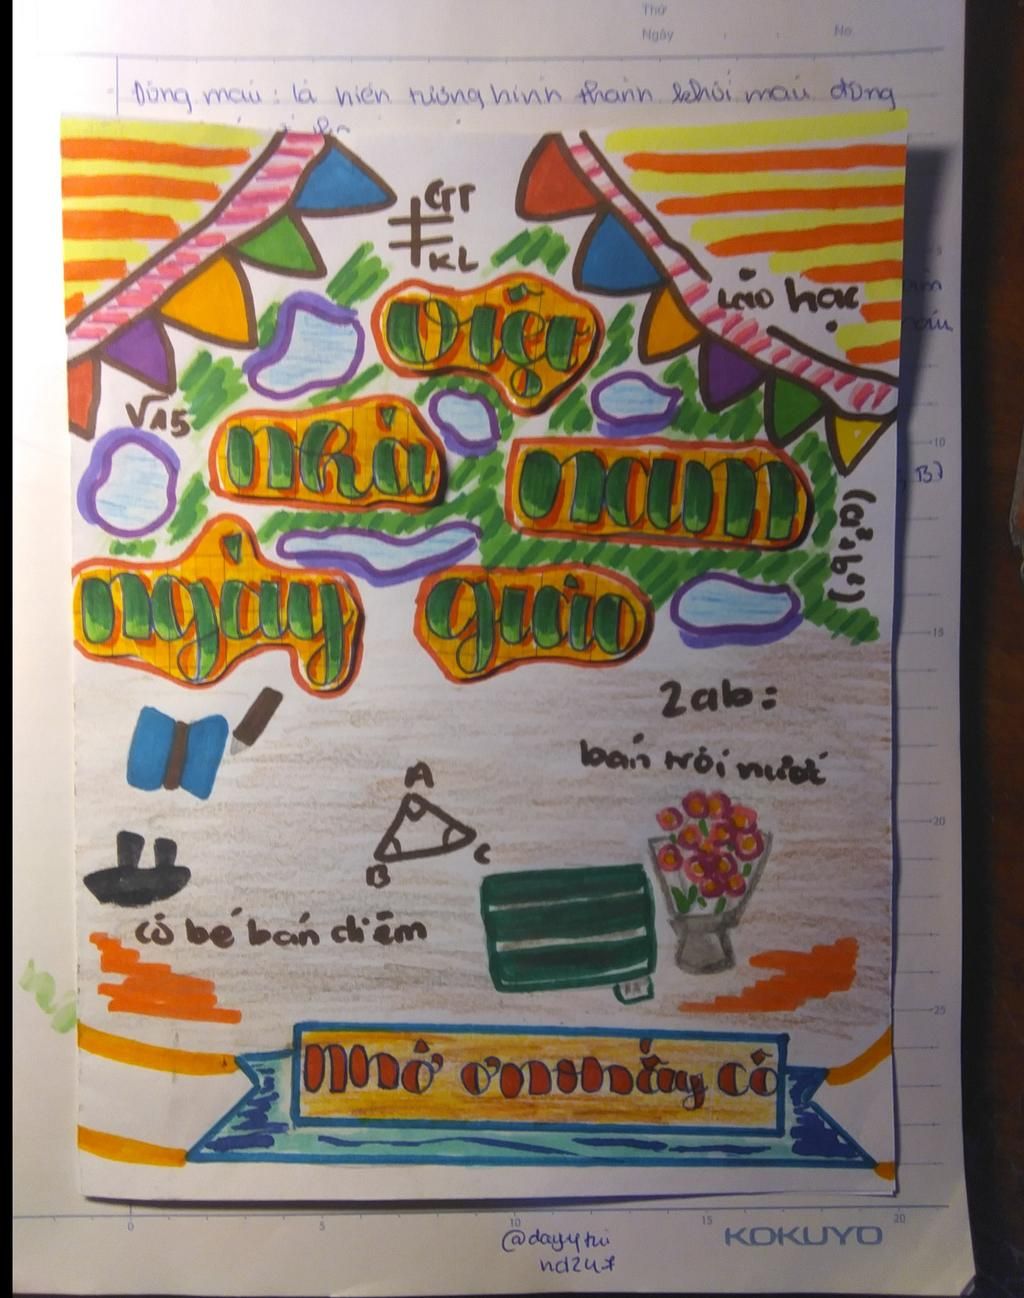 Thứ
Ngày No.
Đông máu: là hiện tượng hình thành khối máu đông
GT
KL
Lão hạc
việt
√15
nhà nam
(a²+b²)
ngày giáo
2ab:
bán trôi nước
A
B C
cô bé bán diêm
NHỚ ƠN thầy CÔ
5
10
15
20
25
0 5 10 15 20
KOKUYO